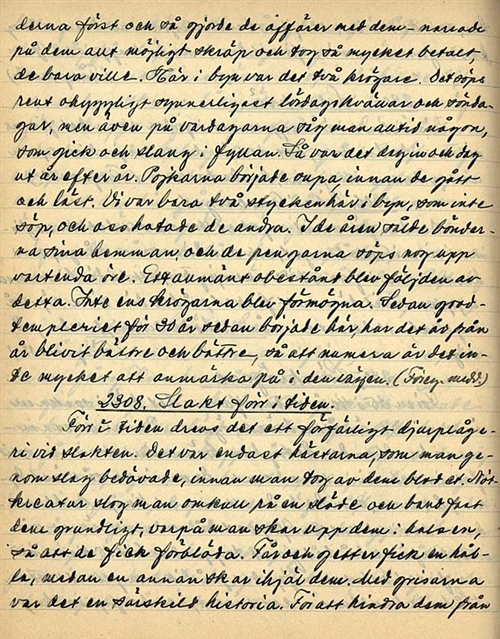 derna först och så gjorde de affärer med dem - narrade
på dem allt möjligt skräp och tog så mycket betalt,
de bara ville. Här i byn var det två krögare. Det söps
rent ohyggligt synnerligast lördagskvällar och sönda-
gar, men även på vardagarna såg man alltid någon,
som gick och slang i fyllan. Så var det dag in och dag
ut år efter år. Pojkarna började supa, innan de gått
och läst. Vi var bara två stycken här i byn, som inte
söp, och oss hatade de andra. I de åren sålde bönder-
na sina hemman, och de pengarna söps nog upp
vartenda öre. Ett allmänt obestånd blev följden av
detta. Inte ens krögarna blev förmögna. Sedan good-
templeriet för 30 år sedan började här, har det år från
år blivit bättre och bättre, så att numera är det in-
te mycket att anmärka på i den vägen. (Föreg. medd.)
2308. Slakt förr i tiden.
Förr i tiden drevs det ett förfärligt djurplåge-
ri vid slakten. Det var endast hästarna, som man ge-
nom slag bedövade, innan man tog av dem blodet. Nöt-
kreatur slog man omkull på en släde och band fast
dem grundligt, varpå man skar upp dem i halsen,
så att de fick förblöda. Får och getter fick en hål-
la, medan en annan skar ihjäl dem. Med grisarna
var det en särskild historia. För att hindra dem från